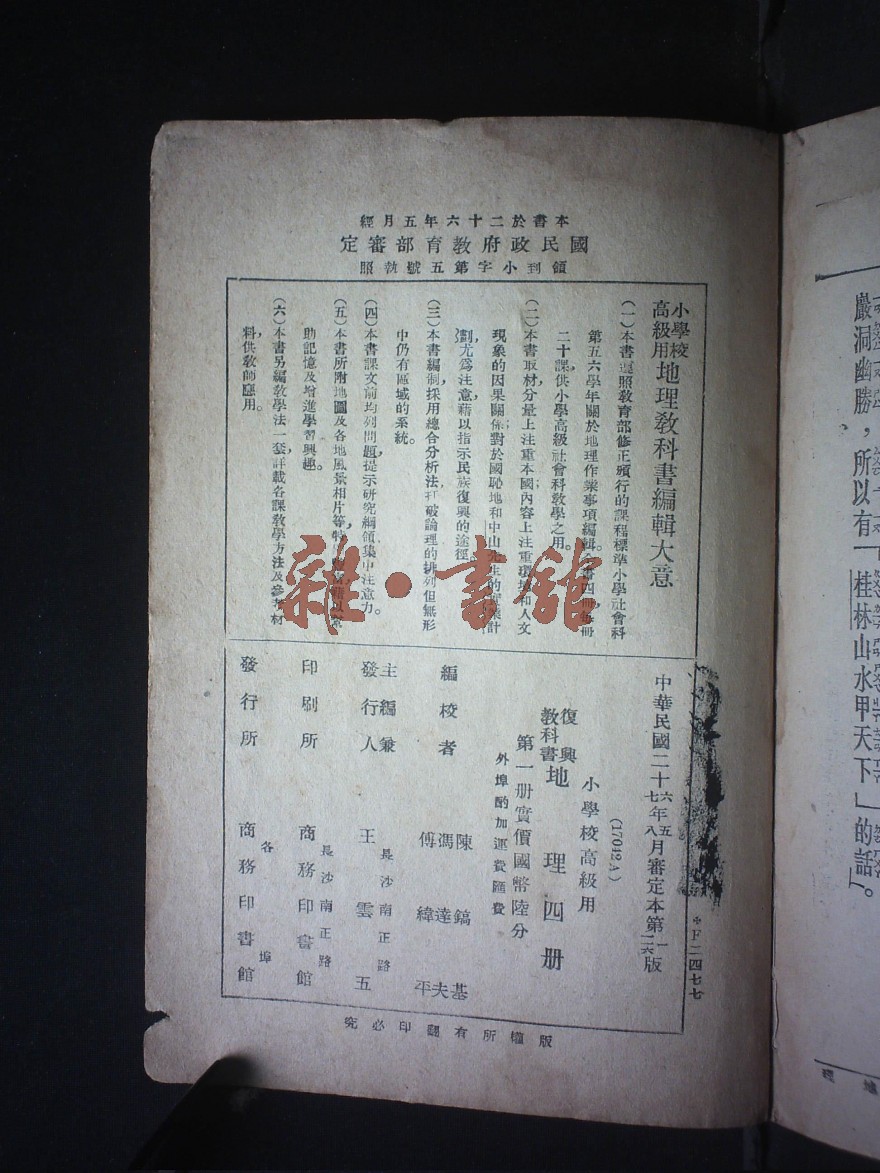 本書於二十六年五月經
國民政府教育部審定
領到小字第五號執照
小學校高級用地理教科書編輯大意
(一)本書遵照教育部修正頒行的課程標準小學社會科
第五六學年關於地理作業事項編輯
書四冊每冊
二十課,供小學高級社會科教學之用。
(二)本書取材,分量上注重本國;內容上注重環境和人文
現象的因果關係;對於國恥地和中山先生的實業計
劃,尤爲注意,藉以指示民族復興的途徑。
(三)本書編制,採用總合分析法,打破論理的排列,但無形
中仍有區域的系統。
(四)本書課文前均列問題,提示研究綱領,集中注意力。
(五)本書所附地圖及各地風景相片等,特
助記憶及增進學習興趣。
(六)本書另編教學法一套,詳載各課教學方法及參考材
料,供教師應用。
中華民國二十六年五月審定本第一版
七 八 二六
*F二四七七
(17042A)
小學校高級用
復興教科書 地理四册
第一册實價國幣陸分
外埠酌加運費匯費
編校者 陳鎬基
馮達夫
傅緯平
主編兼發行人 王雲五
長沙南正路
印刷所 商務印書館
長沙南正路
發行所 商務印書館
各埠
版權所有翻印必究
雜·書館
巖洞幽勝,所以有「桂林山水甲天下」的話。
地理